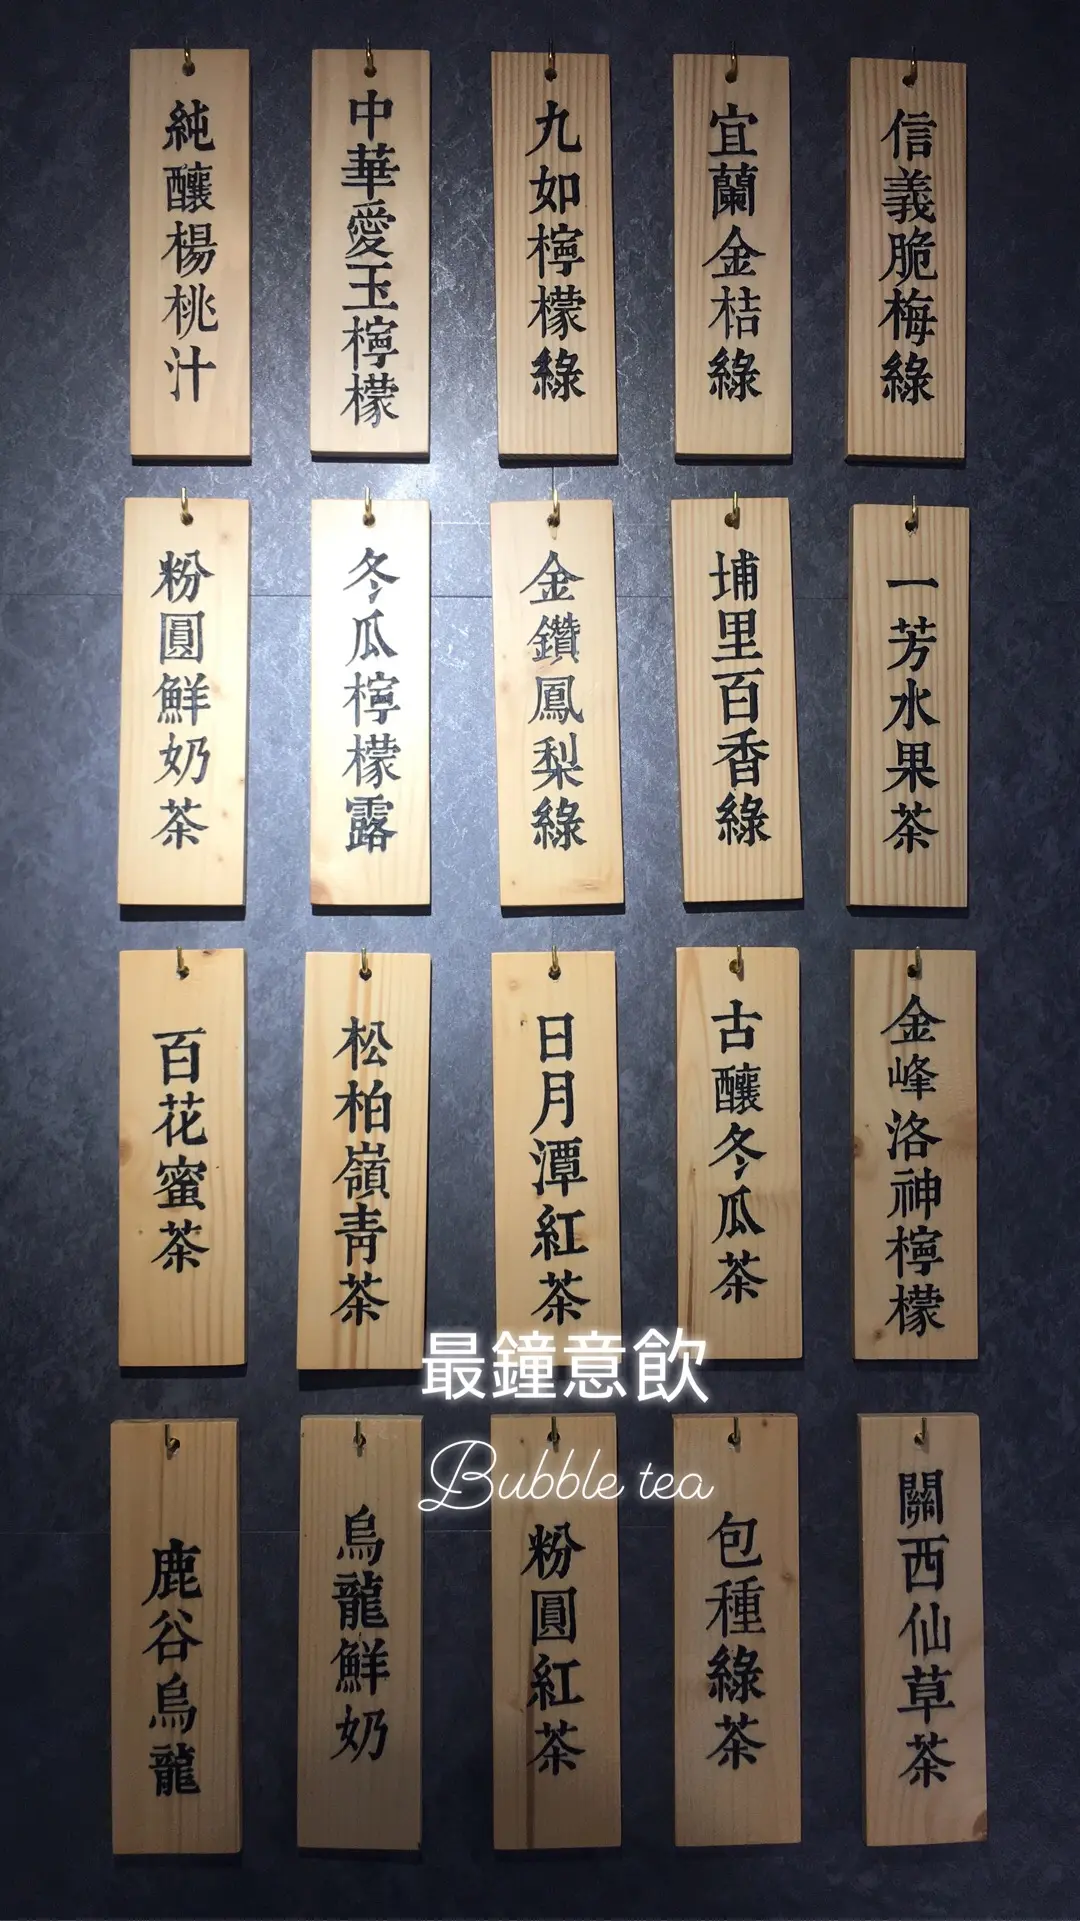 純釀楊桃汁
中華愛玉檸檬
九如檸檬綠
宜蘭金桔綠
信義脆梅綠
粉圓鮮奶茶
冬瓜檸檬露
金鑽鳳梨綠
埔里百香綠
一芳水果茶
百花蜜茶
松柏嶺青茶
日月潭紅茶
古釀冬瓜茶
金峰洛神檸檬
最鐘意飲
Bubble tea
鹿谷烏龍
烏龍鮮奶
粉圓紅茶
包種綠茶
關西仙草茶